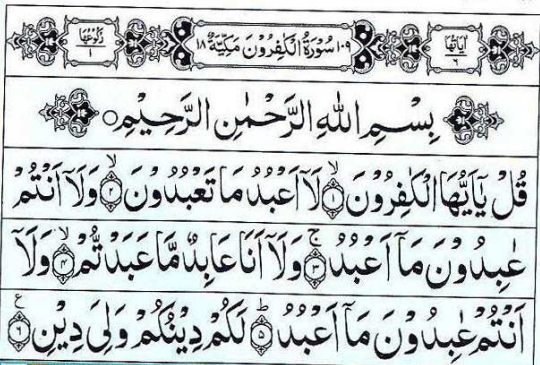 اٰيَاتُهَا ٦ ١٠٩ سُوْرَةُ الْكٰفِرُوْنَ مَكِّيَّةٌ ١٨ رُكُوْعُهَا ١
بِسْمِ اللّٰهِ الرَّحْمٰنِ الرَّحِيْمِ ○
قُلْ يٰٓاَيُّهَا الْكٰفِرُوْنَ ۙ﴿١﴾ لَآ اَعْبُدُ مَا تَعْبُدُوْنَ ۙ﴿٢﴾ وَلَآ اَنْتُمْ
عٰبِدُوْنَ مَآ اَعْبُدُ ۚ﴿٣﴾ وَلَآ اَنَا عَابِدٌ مَّا عَبَدْتُّمْ ۙ﴿٤﴾ وَلَآ
اَنْتُمْ عٰبِدُوْنَ مَآ اَعْبُدُ ؕ﴿٥﴾ لَكُمْ دِيْنُكُمْ وَلِيَ دِيْنِ ﴿٦﴾ ع